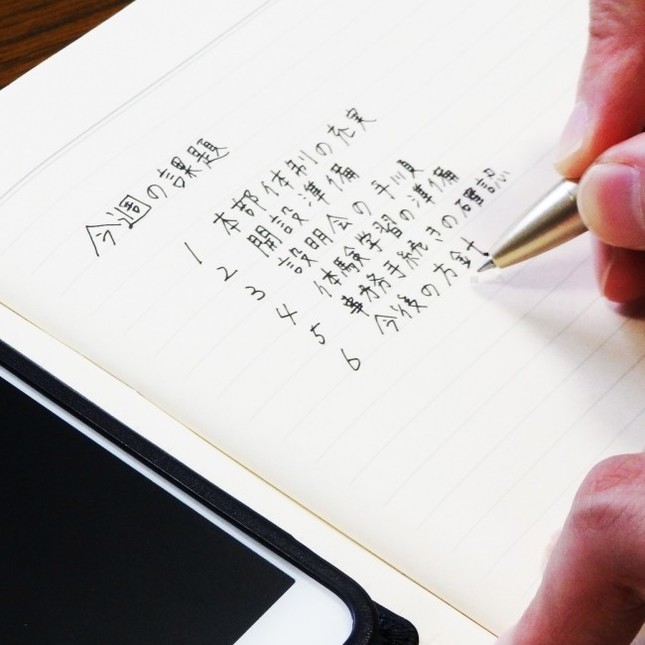 今週の課題
1 本部体制の充実
2 開設準備
3 説明会の手順
4 体験学習の準備
5 事務手続きの確認
6 今後の方針